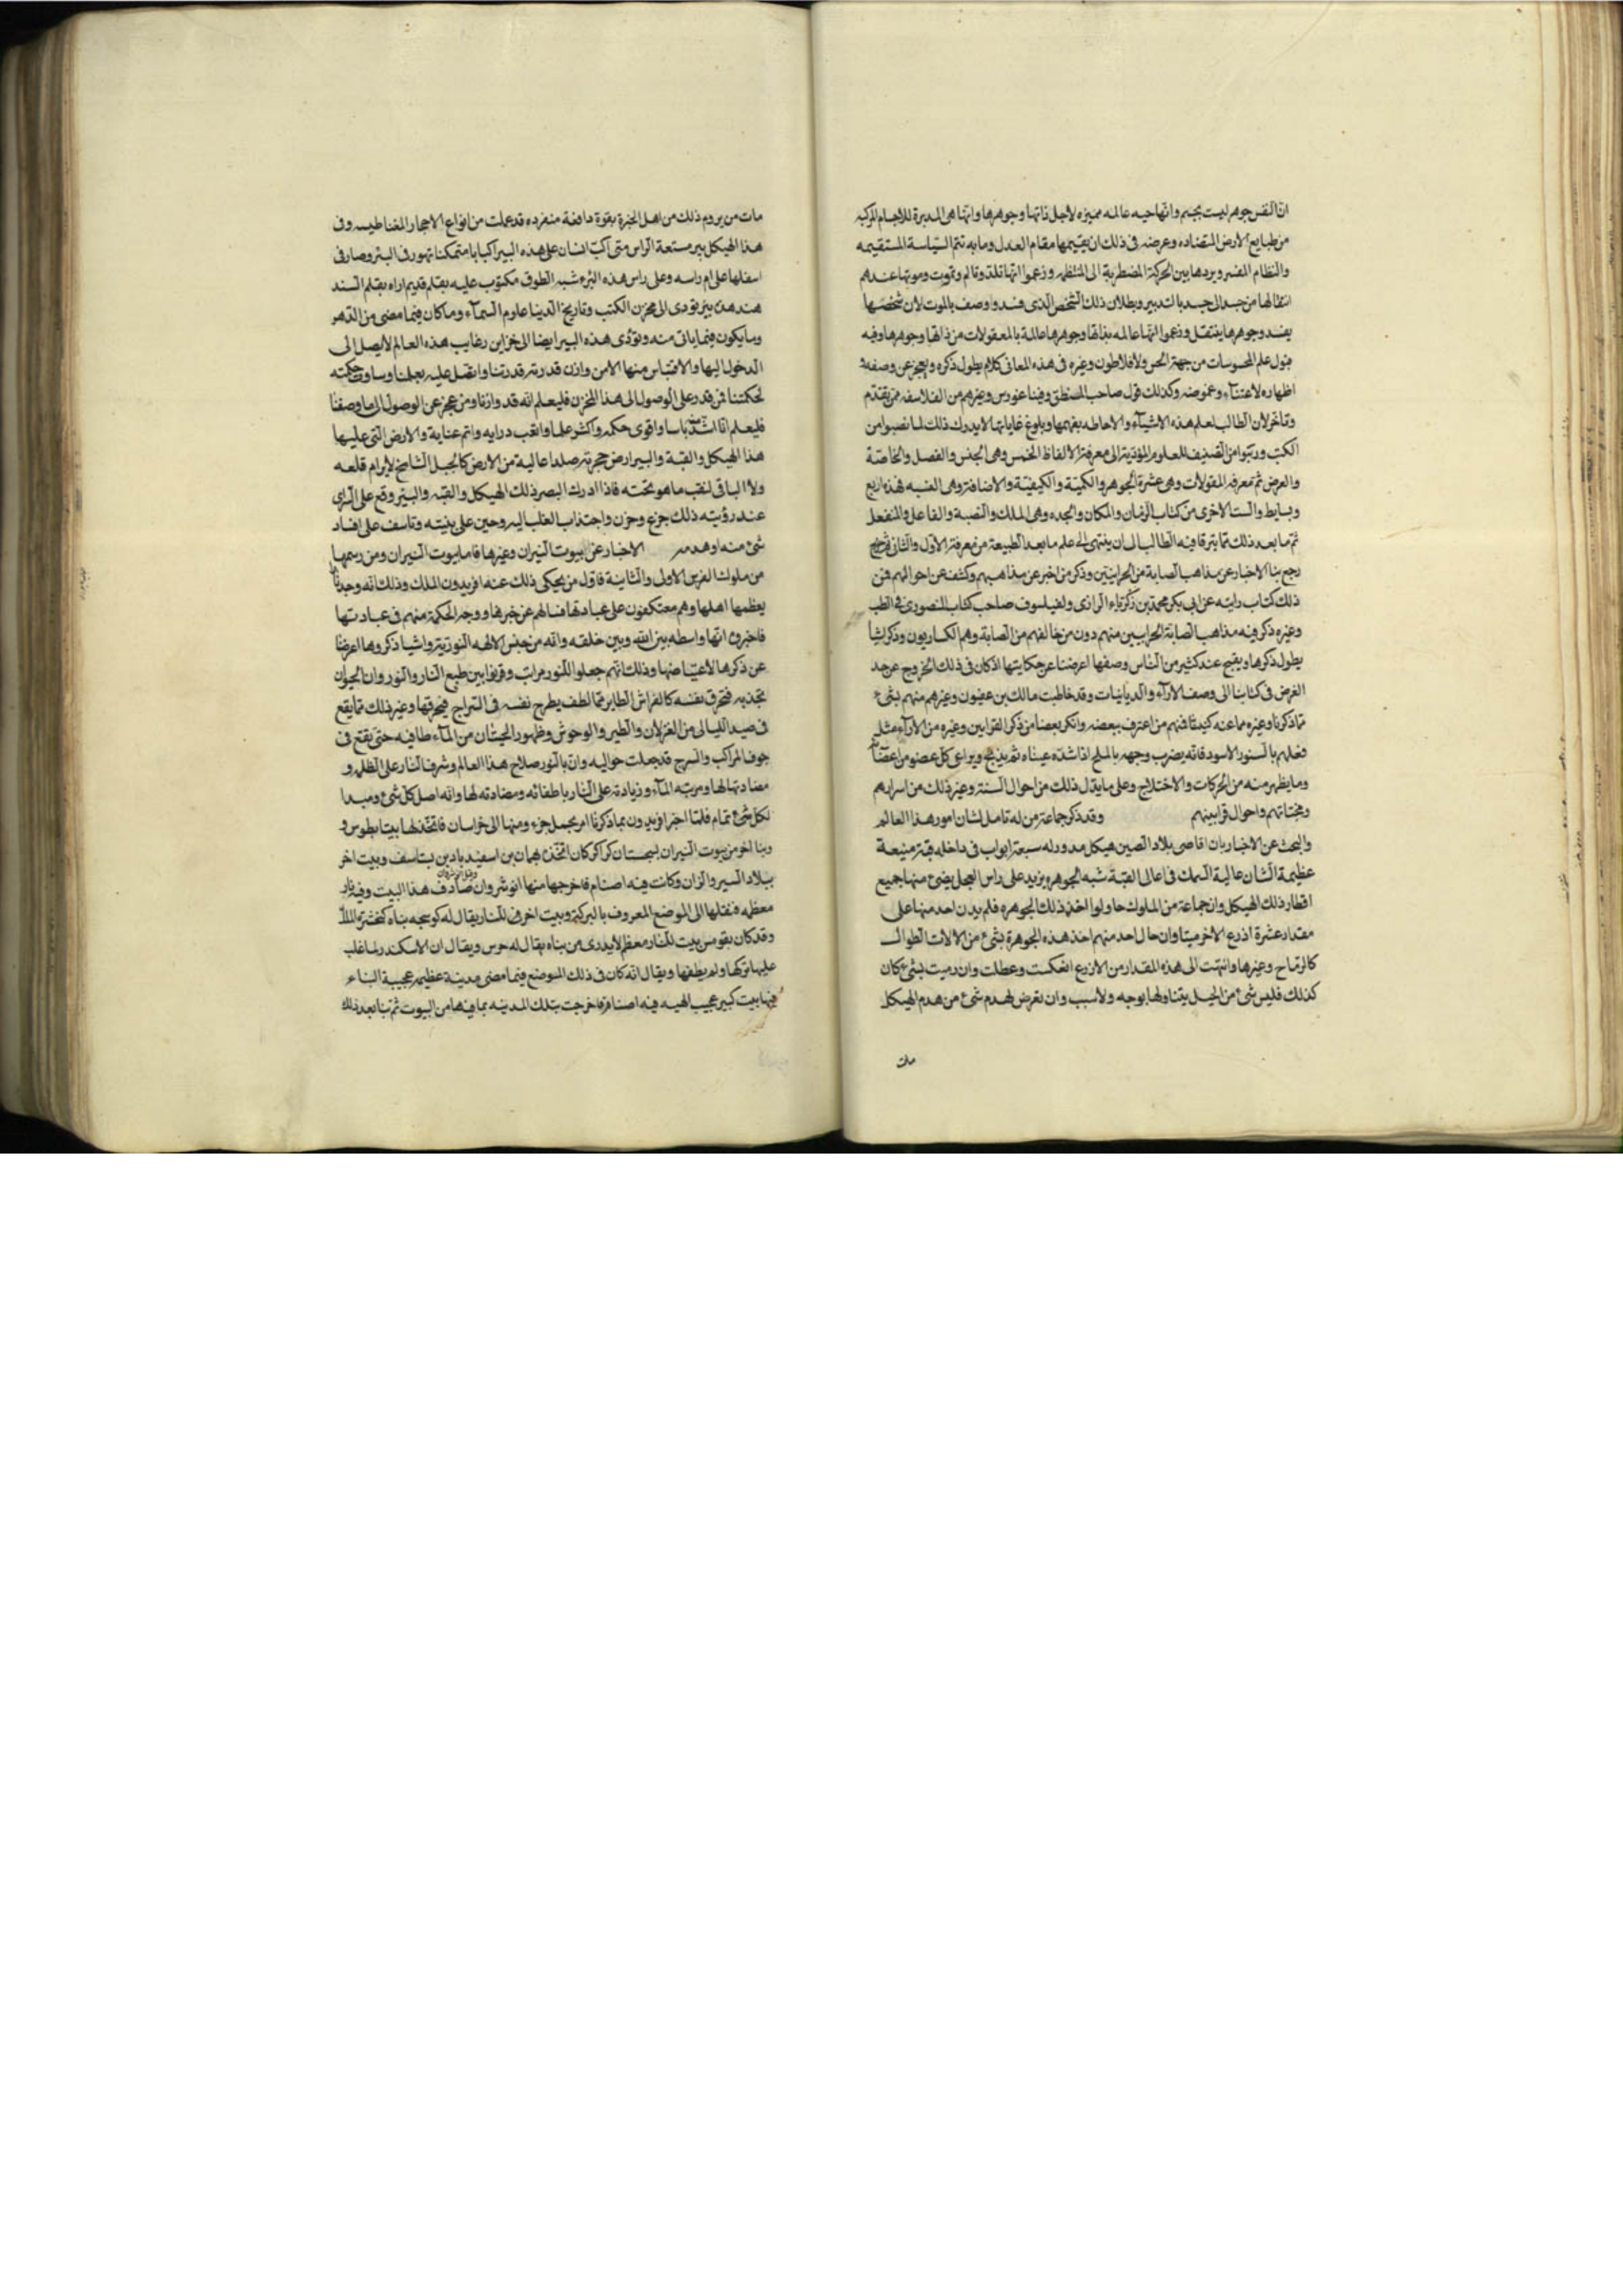 ان النفس جوهر ليست بجسم وانها حيه عالمه مميزه لاجل ذاتها وجوهرها وانها هى المدبرة للاجسام المركبه
من طبايع الارض المتضاده وغرضه فى ذلك ان يقيمها مقام العدل وما به تتم السياسة المستقيمه
والنظام المضر ويردها بين الحركة المضطربة الى المنتظمه وزعموا انها تلتذ وتالم وتموت وموتها عندهم
انتقالها من جسد الى جسد بالتدبير وبطلان ذلك الشخص الذى فسد ووصف بالموت لان شخصها
يفسد وجوهرها ينتقل وزعموا انها عالمه بذاتها وجوهرها عالمة بالمعقولات من ذاتها وجوهرها وفيه
قبول علم المحسوسات من جهة الحس ولافلاطون وغيره فى هذه المعانى كلام يطول ذكره ويعجز عن وصفه و
اظهاره لاعتنآء وغموضه وكذلك قول صاحب المنطق وفيثاغورس وغيرهم من الفلاسفه ممن تقدم
وتاخر لان الطالب لعلم هذه الاشيآء والاحاطه بفهمها وبلوغ غاياتها لا يدرك ذلك لما نصبوا من
الكتب ورتبوا من التصنيف للعلوم المؤدية الى معرفة الالفاظ الخمس وهى الجنس والفصل والخاصة
والعرض ثم معرفه المقولات وهى عشرة الجوهر والكمية والكيفية والاضافة وهى النسبه فهذه اربع
وبسايط والست الاخرى من كتاب الزمان والمكان والجده وهى الملك والنصبة والفاعل والمنفعل
ثم ما بعد ذلك مما يترقا فيه الطالب الى ان ينتهى الى علم ما بعد الطبيعة من معرفة الاول والثانى ثم رجع
رجع بنا الاخبار عن مذاهب الصابة من الحرانيين وذكر من اخبر عن مذاهبهم وكشف عن احوالهم فمن
ذلك كتاب رايته عن ابى بكر محمد بن زكرياء الرازى الفيلسوف صاحب كتاب المنصورى فى الطب
وغيره ذكر فيه مذاهب الصابة الحرانيين منهم دون من خالفهم من الصابة وهم الكماريون وذكر اشيا
يطول ذكرها ويقبح عند كثير من الناس وصفها اعرضنا عن حكايتها اذ كان فى ذلك الخروج عن حد
الغرض فى كتابنا الى وصف الارآء والديانات وقد خاطبت مالك بن عقبون وغيرهم منهم بشئ
مما ذكرنا وغيره مما عنه كنينا فمنهم من اعترف ببعضه وانكر بعضا من ذكر القرابين وغيره من الارآء مثل
فعلهم بالسنور الاسود فانه يضرب وجهه بالملح اذا شدت عيناه ثم يذبح ويراعى كل عضو من اعضآئه
وما يظهر منه من الحركات والاختلاج وعلى ما يدل ذلك من احوال السنة وغير ذلك من اسرارهم
ومخباتهم واحوال قرابينهم وقد ذكر جماعة من له تامل لشان امور هذا العالم
والبحث عن الاخبار بان اقاصى بلاد الصين هيكل مدور له سبعة ابواب فى داخله قبة منيعة
عظيمة الشان عالية السمك فى اعالى القبة شبه الجوهره يزيد على راس العجل يضئ منها جميع
اقطار ذلك الهيكل وان جماعة من الملوك حاولوا اخذ ذلك الجوهره فلم يدن احد منها على
مقدار عشرة اذرع الا خر ميتا وان حال احد منهم اخذ هذه الجوهرة بشئ من الالات الطوال
كالرماح وغيرها وانتهت الى هذه المقدار من الازرع انعكست وعطلت وان رميت بشئ كان
كذلك فليس شئ من الحيل يتناولها بوجه ولا سبب وان تعرض لهدم شئ من هدم الهيكل
مات
مات من يروم ذلك من اهل الخبرة بقوة دافعة منفرده قد عملت من انواع الاحجار المغناطيسه وفى
هذا الهيكل بير مستعة الراس متى اكب انسان على هذه البير اكبابا متمكنا تهور فى البئر وصار فى
اسفلها على ام راسه وعلى راس هذه البئر شبه الطوق مكتوب عليه بقلم قديم اراه بقلم السند
هند هذه بير تودى الى مخزن الكتب وتاريخ الدينا علوم السمآء وما كان فيما مضى من الدهر
وما يكون فيما ياتى منه وتودى هذه البير ايضا الى خزاين رغايب هذه العالم لا يصل الى
الدخول اليها والاقتباس منها الا من وازن قدرته قدرتنا واتصل علمه بعلمنا وساوت حكمته
لحكمتنا فمن قدر على الوصول الى هذا المخزن فليعلم انه قد وازنا ومن عجز عن الوصول الى ما وصفنا
فليعلم انا اشد باسا واقوى حكمه واكثر علما واثقب درايه واتم عناية والارض التى عليها
هذا الهيكل والقبة والبير ارض حجرته صلدا عالية من الارض كالجبل الشامخ لا يرام قلعه
ولا البافى لنقب ما هو تحته فاذا ادرك البصر ذلك الهيكل والقبه والبير وقع على الراى
عند رؤيته ذلك جزع وحزن واجتذاب القلب اليه وحين على بنيته وتاسف على افساد
شئ منه او هدمه الاخبار عن بيوت النيران وغيرها فاما بيوت النيران ومن رسمها
من ملوك الفرس الاولى والثانية فاول من يحكى ذلك عنه افريدون الملك وذلك انه وجد نارا
يعظمها اهلها وهم معتكفون على عبادتها فسالهم عن خبرها ووجه الحكمة منهم فى عبادتها
فاخبروه انها واسطه بين الله وبين خلقه وانه من جنس الالهه النورية واشيا ذكروها اعرضنا
عن ذكرها لاعتياصها وذلك انهم جعلوا للنور مراتب وفرقوا بين طبع النار والنور وان الحيوان
تجذبه فتحرق نفسه كالفراش الطاير فما لطف يطرح نفسه فى السراج فيحرقها وغير ذلك مما يقع
فى صيد الليالى من الغزلان والطير والوحوش وظهور الحيتان من المآء طافيه حتى تقع فى
جوف المراكب والسرج قد جعلت حواليه وان بالنور صلاح هذا العالم وشرف النار على الظلمه و
مضادتها لها ومرتبه المآء وزيادته على النار باطفائه ومضادته لها وانه اصل كل شئ ومبدا
لكل شئ تمام فلما اخبر افريدون بما ذكرنا امر بحمل جزء منها الى خراسان فاتخذ لها بيتا بطوس و
وبنا اخر من بيوت النيران بسجستان كراكر كان اتخذه بهمان بن اسفنديار بن بستاسف وبيت اخر
ببلاد السير والران وكانت فيه اصنام فاخرجها منها انوشروان صادف هذا البيت وفيه نار
معظمه فنقلها الى الموضع المعروف بالبركة وبيت اخر فى للنار يقال له كوسجه بناه كيخسره الملك
وقد كان بقومس بيت للنار معظم لا يدرى من بناه يقال له حرس ويقال ان الاسكندر لما غلب
عليها تركها ولم يطفها ويقال انه كان فى ذلك الموضع فيما مضى مدينة عظيمه عجيبة البناء
فيها بيت كبير عجيب الهيه فيه اصنام فاخرجت بتلك المدينه بما فيها من البيوت ثم بنا بعد ذلك